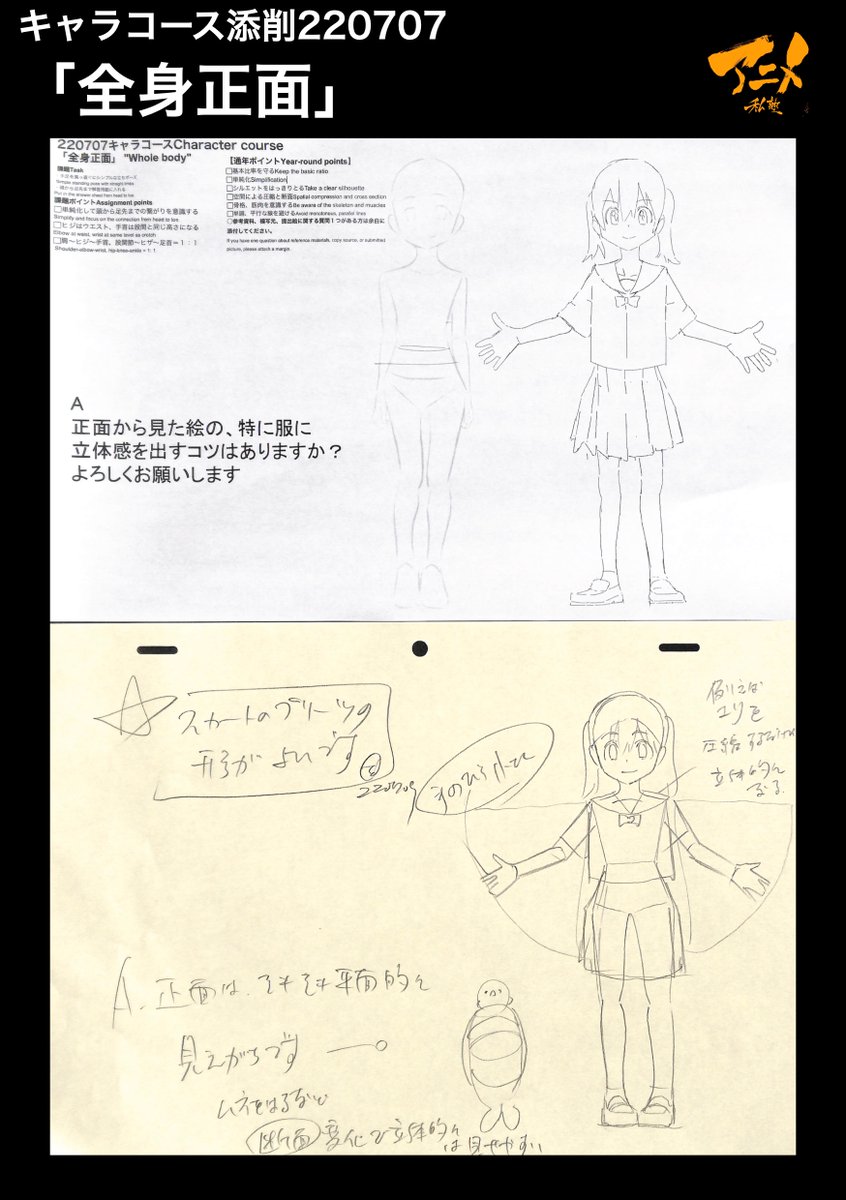 キャラコース添削220707
「全身正面」
アニメ
私塾
220707キャラコースCharacter course
「全身正面」 "Whole body"
課題Task
手足を真っ直ぐにシンプルな立ちポーズ
Simple standing pose with straight limbs
頭から足先まで解答用紙に入れる
Put in the answer sheet from head to toe
課題ポイントAssignment points
□単純化して頭から足先までの繋がりを意識する
Simplify and focus on the connection from head to toe
□ヒジはウエスト、手首は股関と同じ高さになる
Elbow at waist, wrist at same level as crotch
□肩〜ヒジ〜手首、股関節〜ヒザ〜足首＝１：１
Shoulder-elbow-wrist, hip-knee-ankle = 1: 1
【通年ポイントYear-round points】
□基本比率を守るKeep the basic ratio
□単純化Simplification
□シルエットをはっきりとるTake a clear silhouette
□空間による圧縮と断面Spatial compression and cross section
□骨格、筋肉を意識するBe aware of the skeleton and muscles
□単調、平行な線を避けるAvoid monotonous, parallel lines
○参考資料、模写元、提出絵に関する質問１つがある方は余白に
添付してください。
If you have one question about reference materials, copy source, or submitted
picture, please attach a margin.
A
正面から見た絵の、特に服に
立体感を出すコツはありますか？
よろしくお願いします
スカートのプリーツの
形がよいです
220709
手のひら小さい
例えば
エリを
圧縮するだけで
立体的に
なる
A. 正面は、そもそも平面的に
見えがちです
ムネをはるなど
断面変化で立体的に
は見せやすい